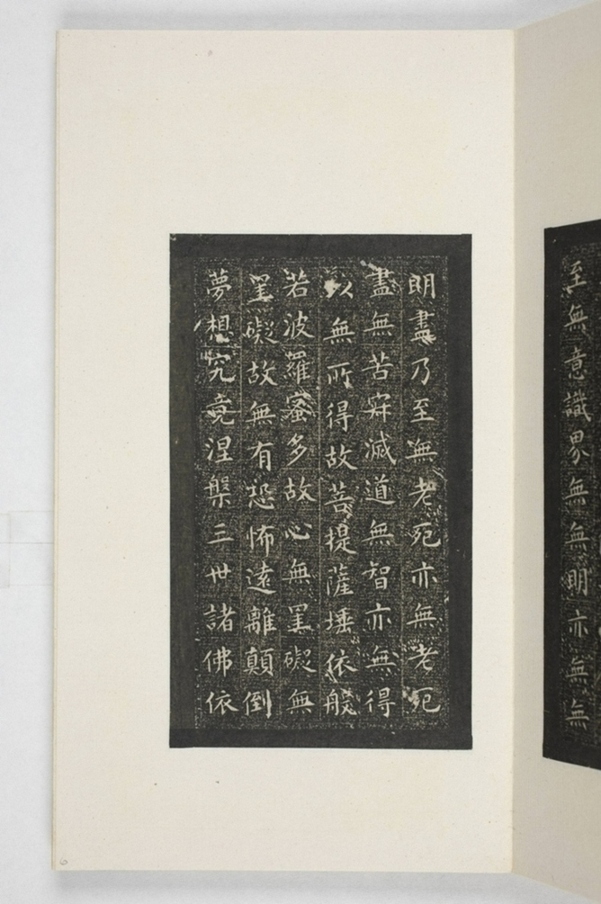 至無意識界無無明亦無無
明盡乃至無老死亦無老死
盡無苦寂滅道無智亦無得
以無所得故菩提薩埵依般
若波羅蜜多故心無罣礙無
罣礙故無有恐怖遠離顛倒
夢想究竟涅槃三世諸佛依
6